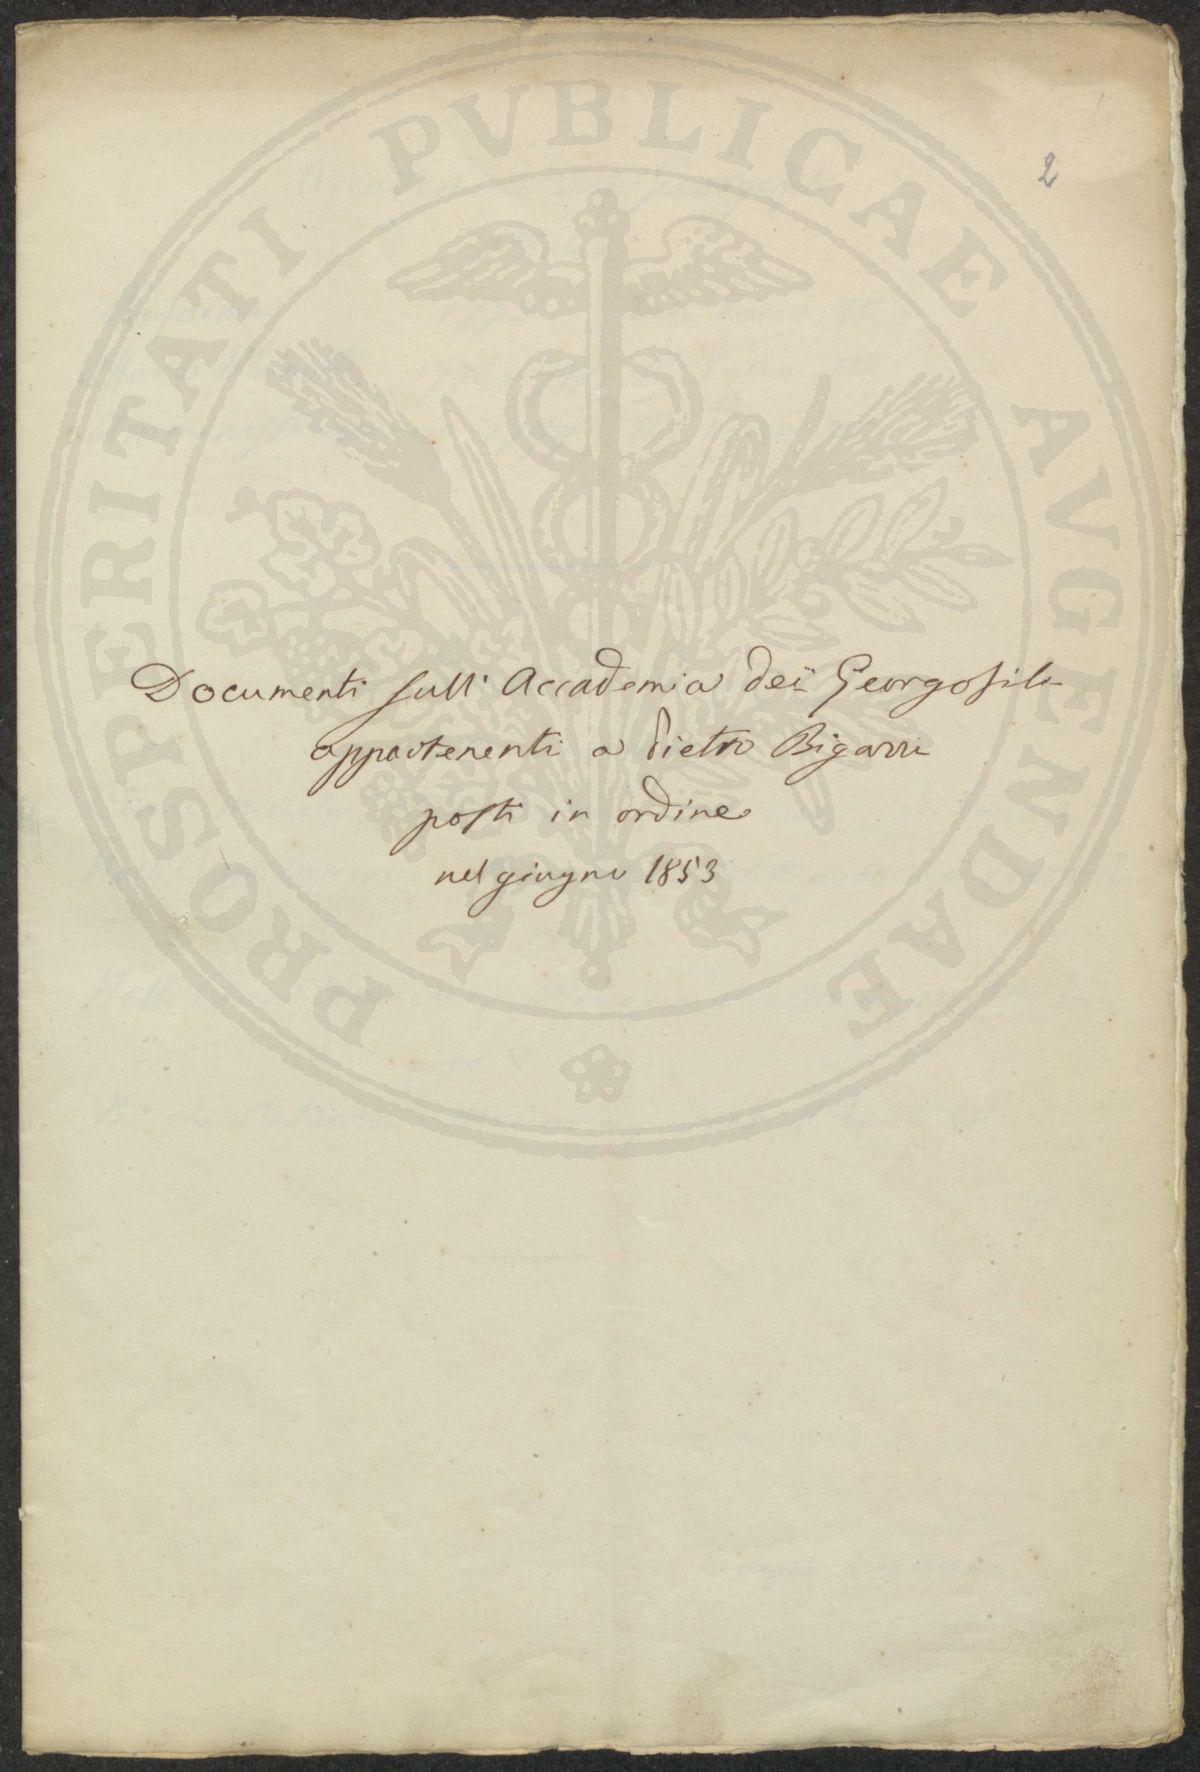 PROSPERITATI PVBLICAE AVGENDAE
2
Documenti sull' Accademia dei Georgofili
appartenenti a Pietro Bigazzi
posti in ordine
nel giugno 1853